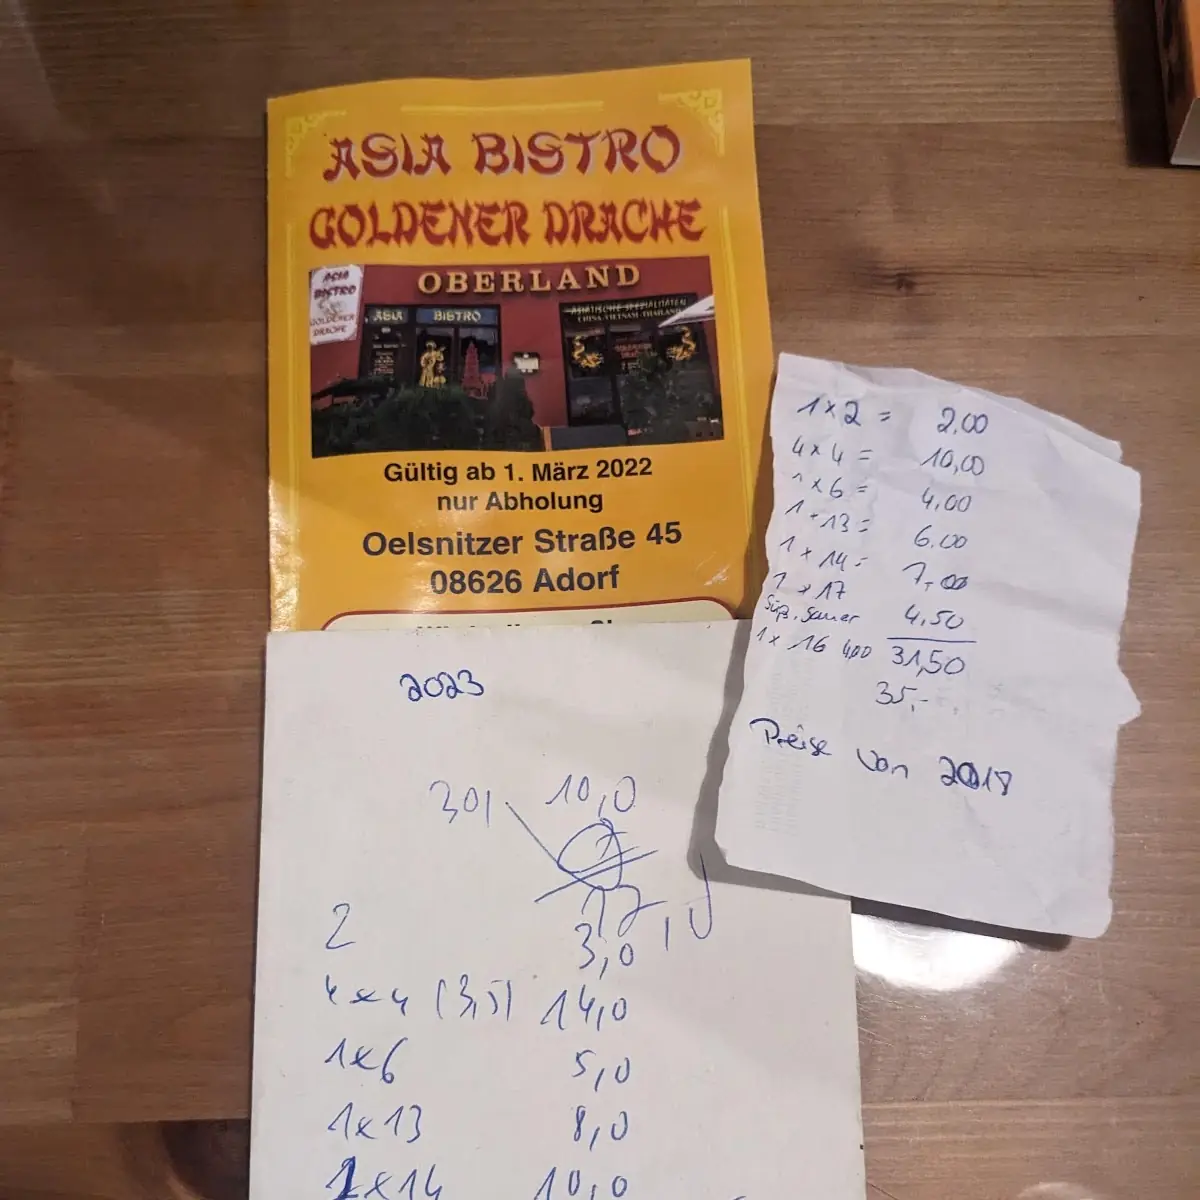 ASIA BISTRO
GOLDENER DRACHE
OBERLAND
ASIA
BISTRO
GOLDENER
DRACHE
ASIA BISTRO
ASIATISCHE SPEZIALITÄTEN
CHINA-VIETNAM-THAILAND
Gültig ab 1. März 2022
nur Abholung
Oelsnitzer Straße 45
08626 Adorf
1 x 2 = 2,00
4 x 4 = 10,00
1 x 6 = 4,00
1 + 13 = 6,00
1 x 14 = 7,00
1 x 17
Süß, Sauer 4,50
1 x 16 4,00 31,50
35,-
Preise von 2018
2023
30, 10,0
2 3,0
4 x 4 (3,5) 14,0
1x6 5,0
1x13 8,0
1x14 10,0